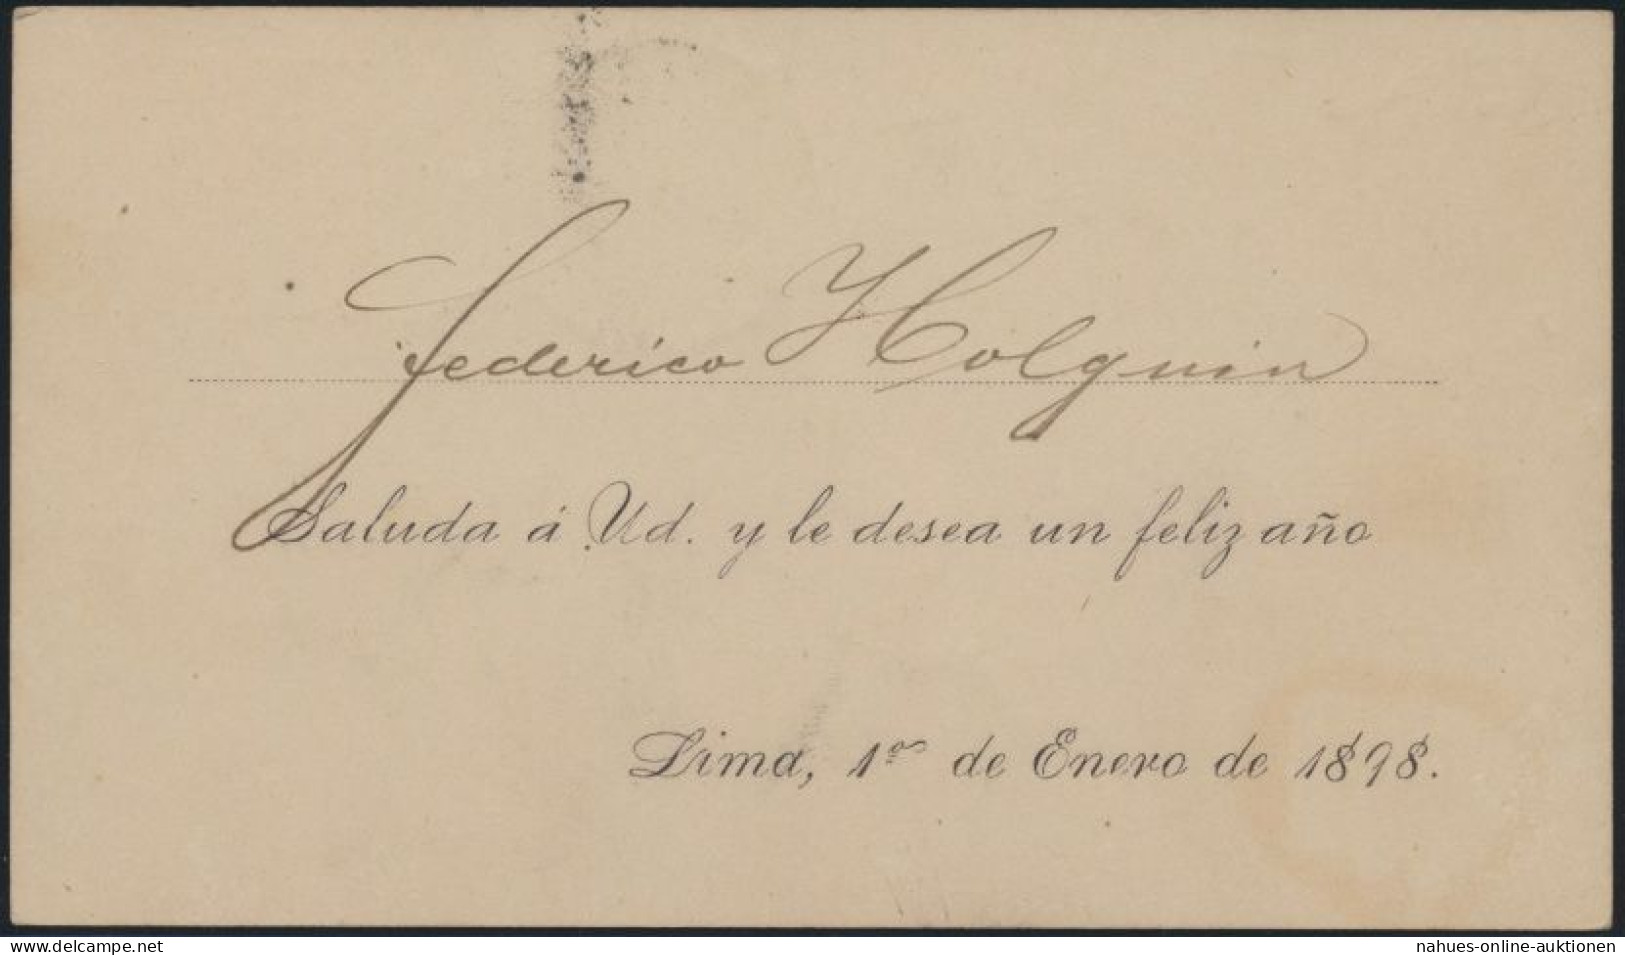 Federico Holguin
Saluda á Ud. y le desea un feliz año
Lima, 1º de Enero de 1898.
www.delcampe.net
nahues-online-auktionen